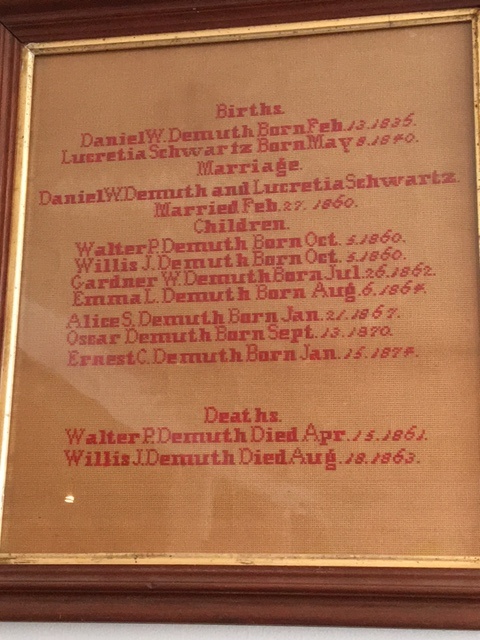 Births.
Daniel W. Demuth Born Feb. 13. 1835.
Lucretia Schwartz Born May 8. 1840.
Marriage.
Daniel W. Demuth and Lucretia Schwartz.
Married Feb. 27. 1860.
Children.
Walter P. Demuth Born Oct. 5. 1860.
Willis J. Demuth Born Oct. 5. 1860.
Gardner W. Demuth Born Jul. 26. 1862.
Emma L. Demuth Born Aug. 6. 1864.
Alice S. Demuth Born Jan. 21. 1867.
Oscar Demuth Born Sept. 13. 1870.
Ernest C. Demuth Born Jan. 15. 1874.
Deaths.
Walter P. Demuth Died Apr. 15. 1861.
Willis J. Demuth Died Aug. 18. 1863.